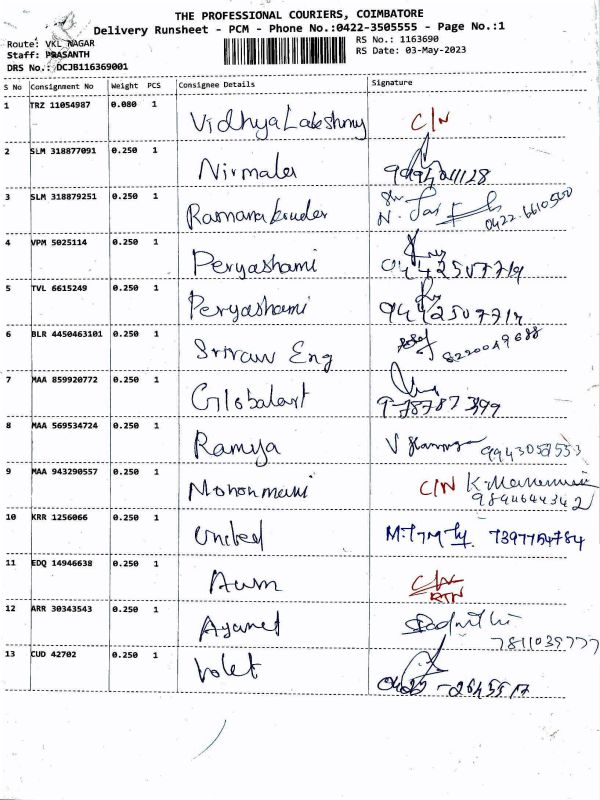 THE PROFESSIONAL COURIERS, COIMBATORE
Delivery Runsheet - PCM - Phone No.:0422-3505555 - Page No.:1
Route: VKL NAGAR
Staff: PRASANTH
DRS No.: DCJB116369001
RS No.: 1163690
RS Date: 03-May-2023
S No Consignment No Weight PCS Consignee Details Signature
1 TRZ 11054987 0.080 1 Vidhya Lakeshmy C/N
2 SLM 318877091 0.250 1 Nirmala
3 SLM 318879251 0.250 1 0422 6610500
4 VPM 5025114 0.250 1 Peryashami
5 TVL 6615249 0.250 1 Peryashami
6 BLR 4450463101 0.250 1 Sriram Eng
7 MAA 859920772 0.250 1 Globalart
8 MAA 569534724 0.250 1 Ramya
9 MAA 943290557 0.250 1 Monohmani C/N
10 KRR 1256066 0.250 1 United 7397754784
11 EDQ 14946638 0.250 1 RTN
12 ARR 30343543 0.250 1 7811039777
13 CUD 42702 0.250 1 Volet